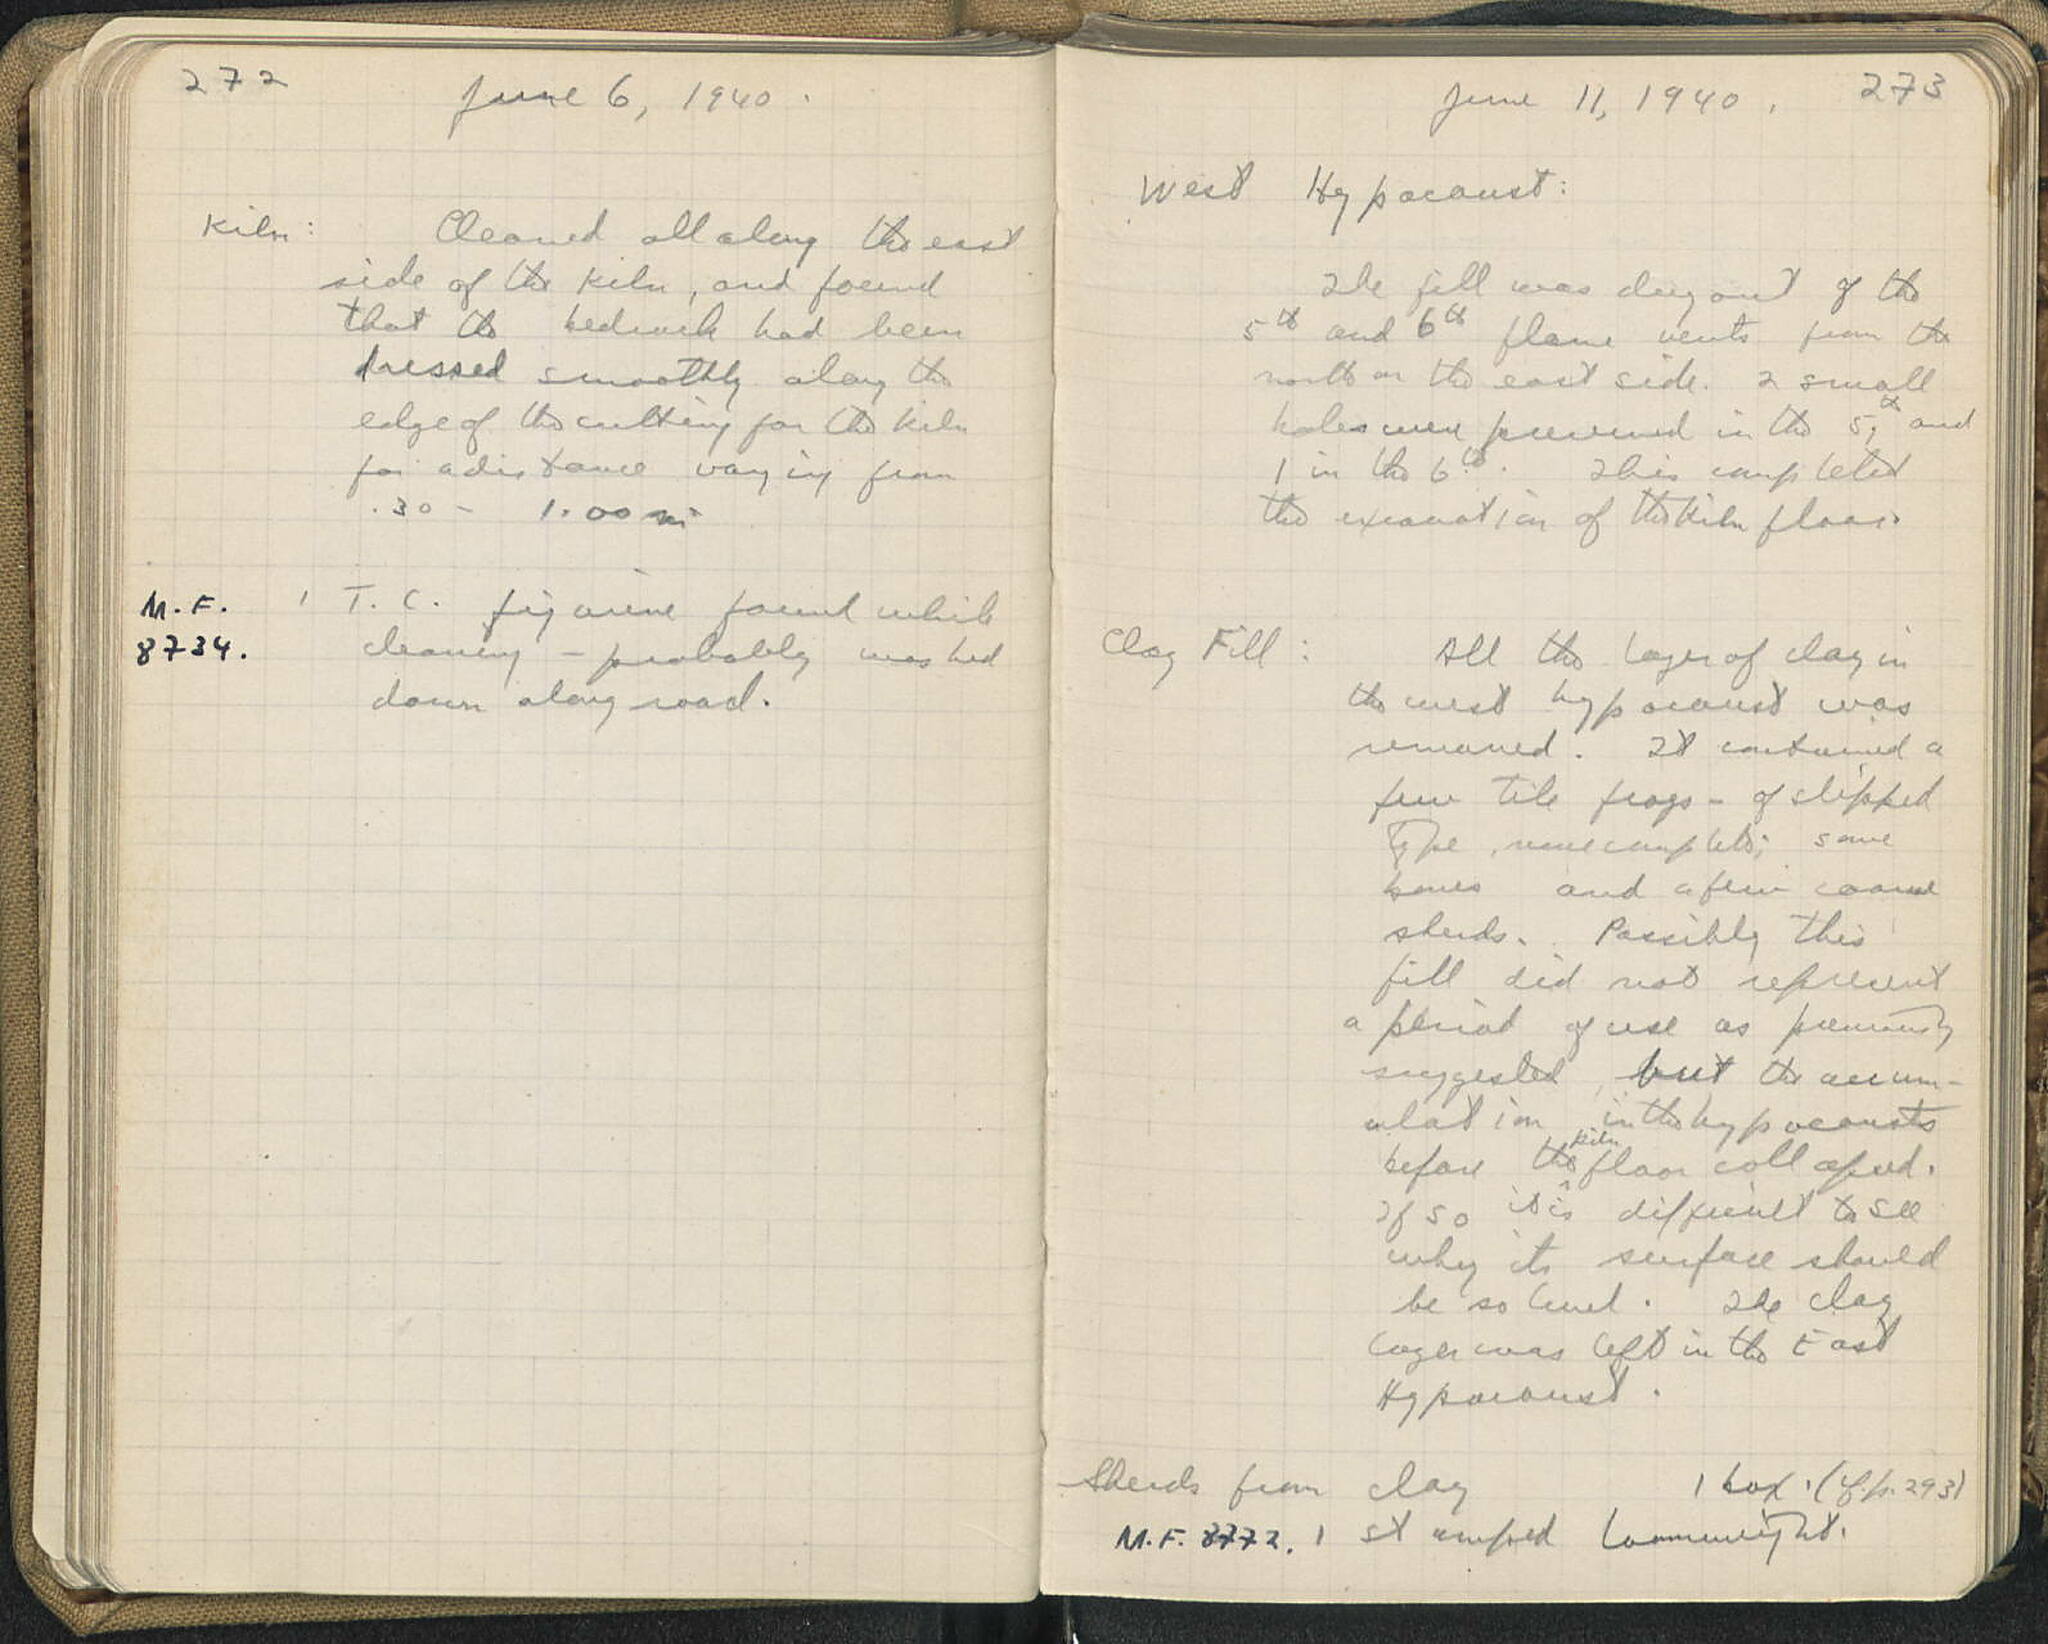 272
June 6, 1940.
Kiln: Cleaned all along the east
side of the kiln, and found
that the bedrock had been
dressed smoothly along the
edge of the cutting for the kiln
for a distance varying from
.30 - 1.00 m
M.F. 1 T.C. figurine found while
8734. cleaning - probably washed
down along road.
June 11, 1940. 273
West Hypocaust:
The fill was dug out of the
5th and 6th flame vents from the
north on the east side. 2 small
holes were preserved in the 5th, and
1 in the 6th. This completed
the excavation of the kiln floor.
Clay Fill: All the layer of clay in
the west hypocaust was
removed. It contained a
few tile frags - of slipped
type, none complete; some
bones and a few coarse
sherds. Possibly this
fill did not represent
a period of use as previously
suggested, but the accum-
ulation in the hypocausts
before the kiln floor collapsed.
If so it is difficult to see
why its surface should
be so level. The clay
layer was left in the East
Hypocaust.
Sherds from clay 1 box. (cf. p. 293)
M.F. 8772. 1 stamped loomweight.